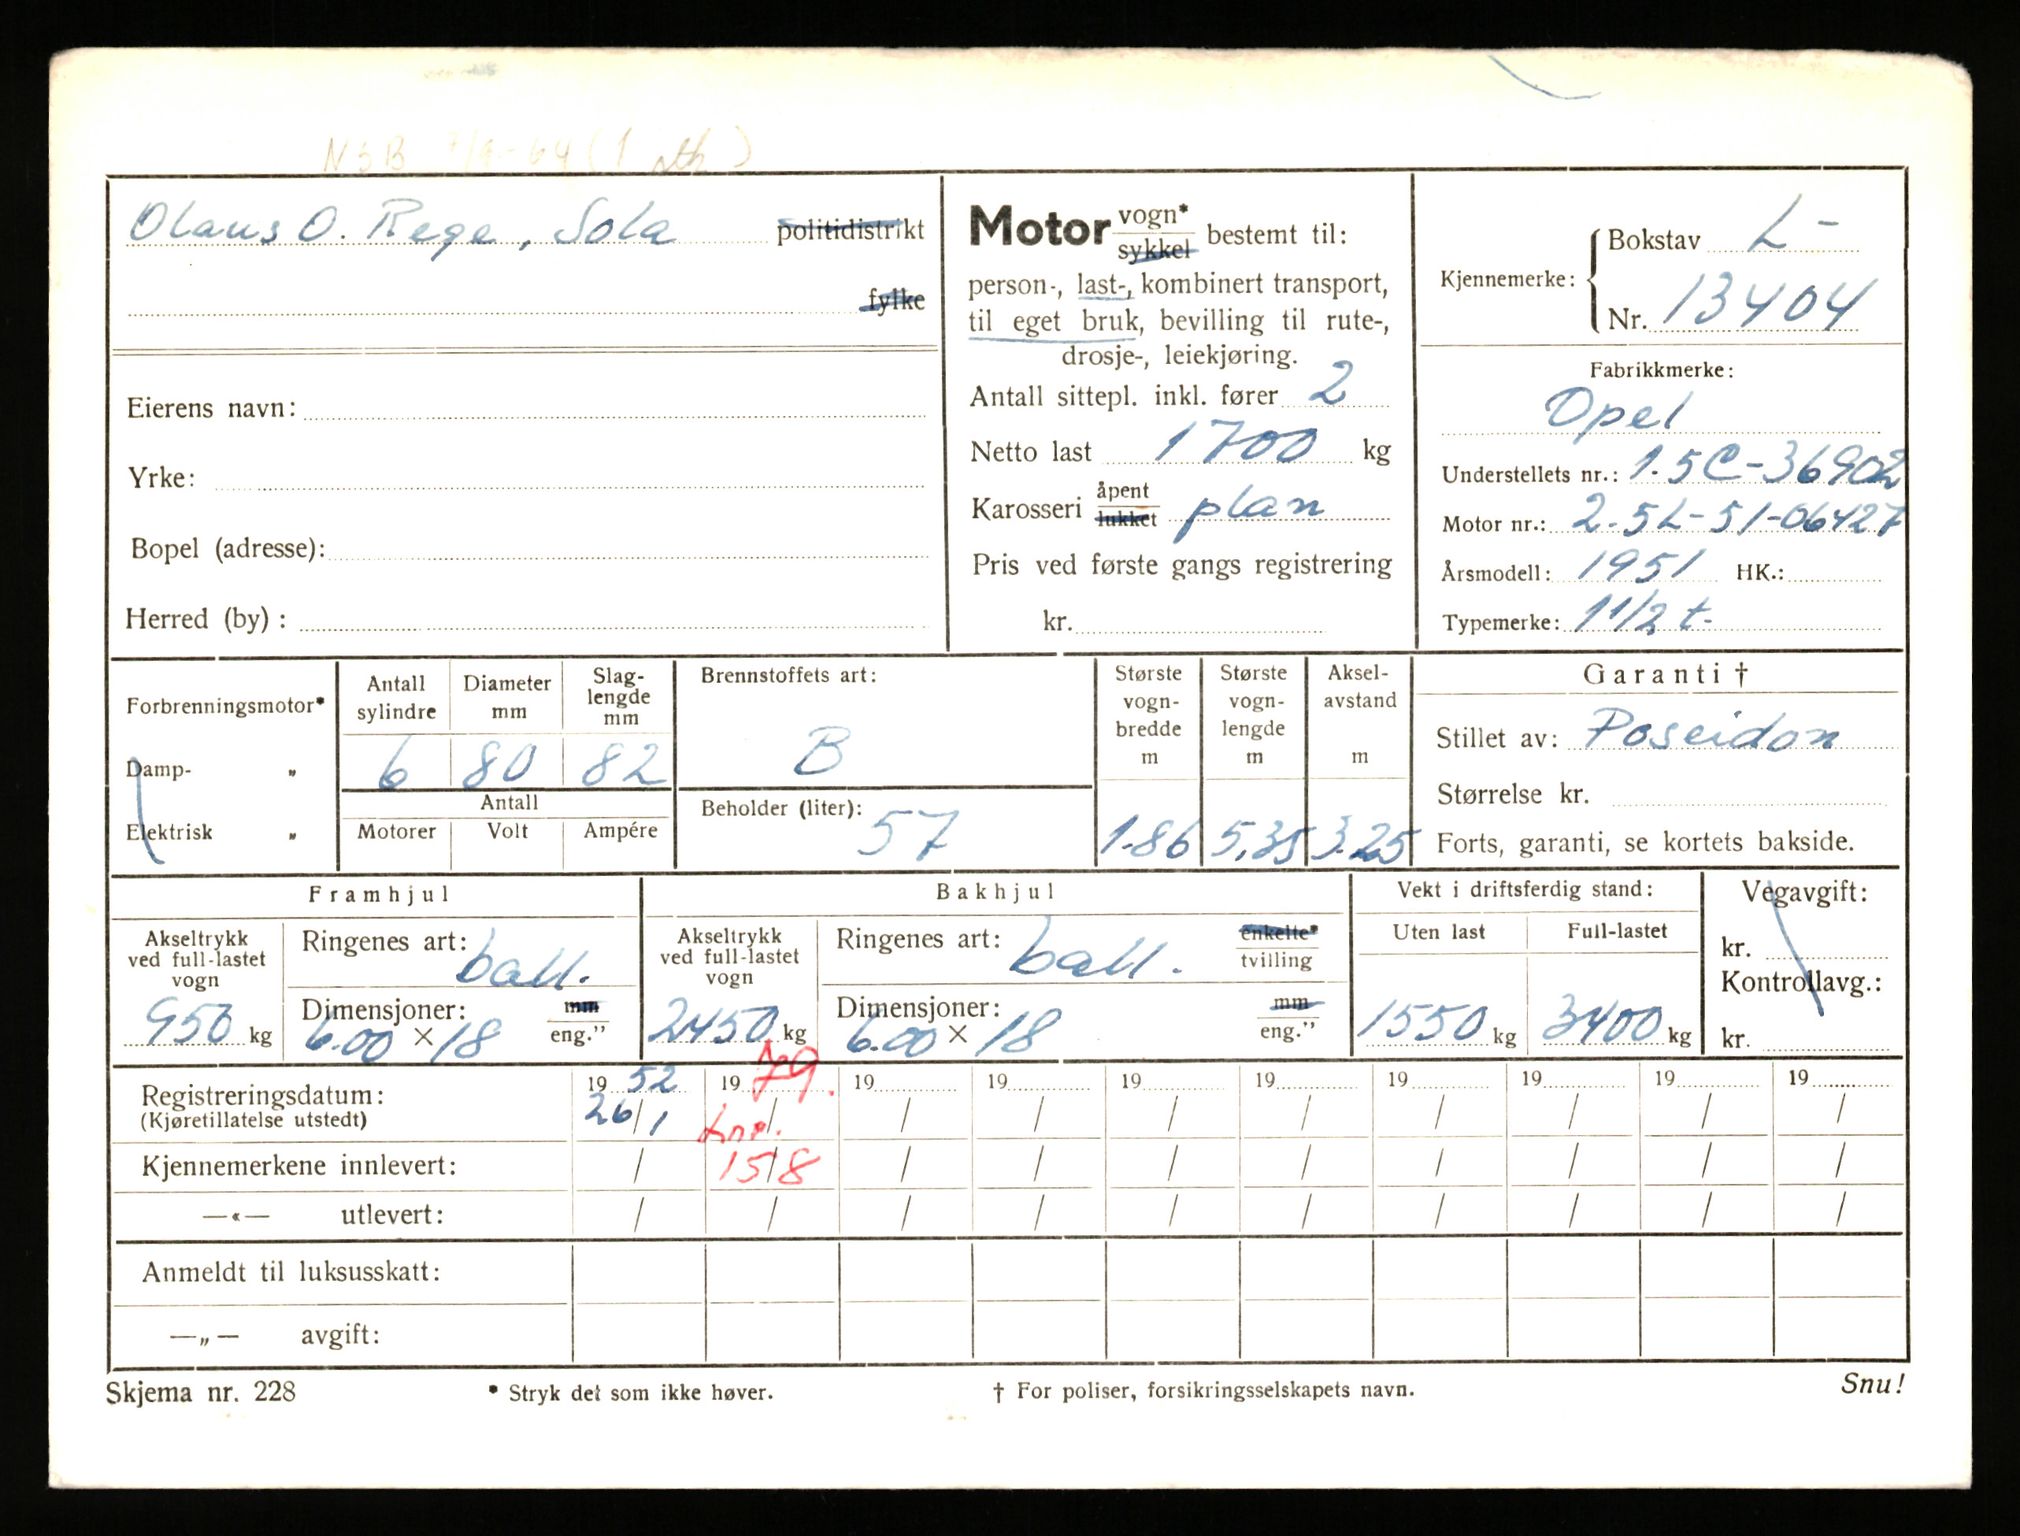 NSB 7/9-64 (1 stk)
Olaus O. Rege, Sola politidistrikt
fylke
Eierens navn:
Yrke:
Bopel (adresse):
Herred (by) :
Motor vogn* sykkel bestemt til:
person-, last-, kombinert transport,
til eget bruk, bevilling til rute-,
drosje-, leiekjøring.
Antall sittepl. inkl. fører 2
Netto last 1700 kg
Karosseri åpent lukket plan
Pris ved første gangs registrering
kr.
Kjennemerke: Bokstav L-
Nr. 13404
Fabrikkmerke:
Opel
Understellets nr.: 1.5C-36902
Motor nr.: 2.5L-51-06427
Årsmodell: 1951 HK.:
Typemerke: 1 1/2 t-
Forbrenningsmotor*
Damp- „
Elektrisk „
Antall sylindre 6
Diameter mm 80
Slag-lengde mm 82
Antall
Motorer Volt Ampére
Brennstoffets art:
B
Beholder (liter): 57
Største vogn-bredde m 1.86
Største vogn-lengde m 5,35
Aksel-avstand m 3.25
Garanti †
Stillet av: Poseidon
Størrelse kr.
Forts, garanti, se kortets bakside.
Framhjul
Akseltrykk ved full-lastet vogn 950 kg
Ringenes art: ball.
Dimensjoner: mm eng.”
6.00 × 18
Bakhjul
Akseltrykk ved full-lastet vogn 2450 kg
Ringenes art: ball. enkelte* tvilling
Dimensjoner: mm eng.”
6.00 × 18
Vekt i driftsferdig stand:
Uten last Full-lastet
1550 kg 3400 kg
Vegavgift:
kr.
Kontrollavg.:
kr.
Registreringsdatum: 19 52 19 79. 19 19 19 19 19 19 19 19
(Kjøretillatelse utstedt) 26/1 / / / / / / / / /
Kjennemerkene innlevert: / 15/8 / / / / / / / /
—«— utlevert: / / / / / / / / / /
Anmeldt til luksusskatt:
—„— avgift:
Skjema nr. 228 * Stryk det som ikke høver. † For poliser, forsikringsselskapets navn. Snu!